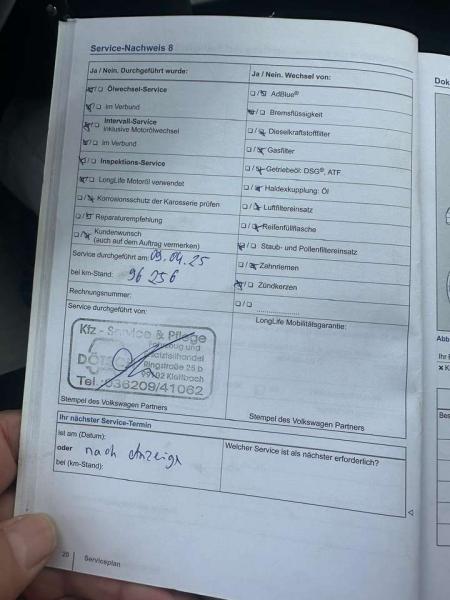 Service-Nachweis 8
Ja / Nein. Durchgeführt wurde:
Ja / Nein. Wechsel von:
Ölwechsel-Service
AdBlue®
im Verbund
Bremsflüssigkeit
Intervall-Service
inklusive Motorölwechsel
Dieselkraftstofffilter
im Verbund
Gasfilter
Inspektions-Service
Getriebeöl: DSG®, ATF
LongLife Motoröl verwendet
Haldexkupplung: Öl
Korrosionsschutz der Karosserie prüfen
Luftfiltereinsatz
Reparaturempfehlung
Reifenfüllflasche
Kundenwunsch
(auch auf dem Auftrag vermerken)
Staub- und Pollenfiltereinsatz
Service durchgeführt am: 09.04.25
Zahnriemen
bei km-Stand: 96 256
Zündkerzen
Rechnungsnummer:
Service durchgeführt von:
LongLife Mobilitätsgarantie:
Kfz - Service & Pflege
Ringstraße 25 b
Tel.: 036209/41062
Stempel des Volkswagen Partners
Stempel des Volkswagen Partners
Ihr nächster Service-Termin
ist am (Datum):
Welcher Service ist als nächster erforderlich?
oder nach Anzeige
bei (km-Stand):
20
Serviceplan
Dok
Abb
Ihr
Bes